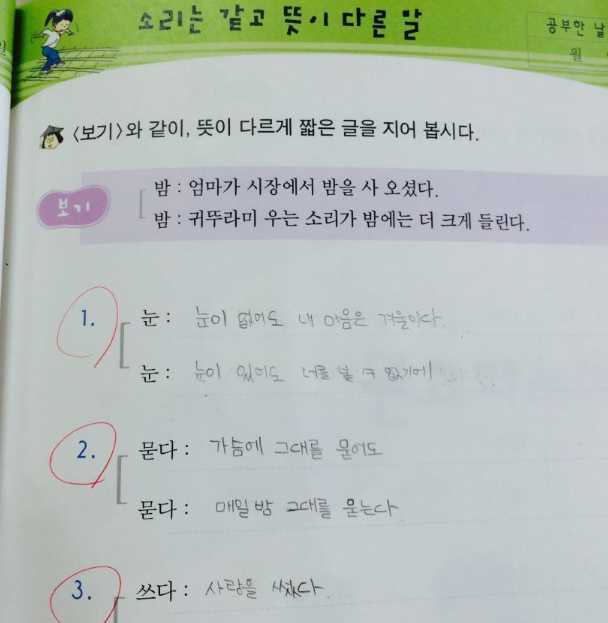 소리는 같고 뜻이 다른 말
공부한 날
월
<보기>와 같이, 뜻이 다르게 짧은 글을 지어 봅시다.
보기
밤 : 엄마가 시장에서 밤을 사 오셨다.
밤 : 귀뚜라미 우는 소리가 밤에는 더 크게 들린다.
1. 눈 : 눈이 없어도 내 마음은 겨울이다.
눈 : 눈이 있어도 너를 볼 수 없기에
2. 묻다 : 가슴에 그대를 묻어도
묻다 : 매일 밤 그대를 묻는다
3. 쓰다 : 사랑을 썼다.